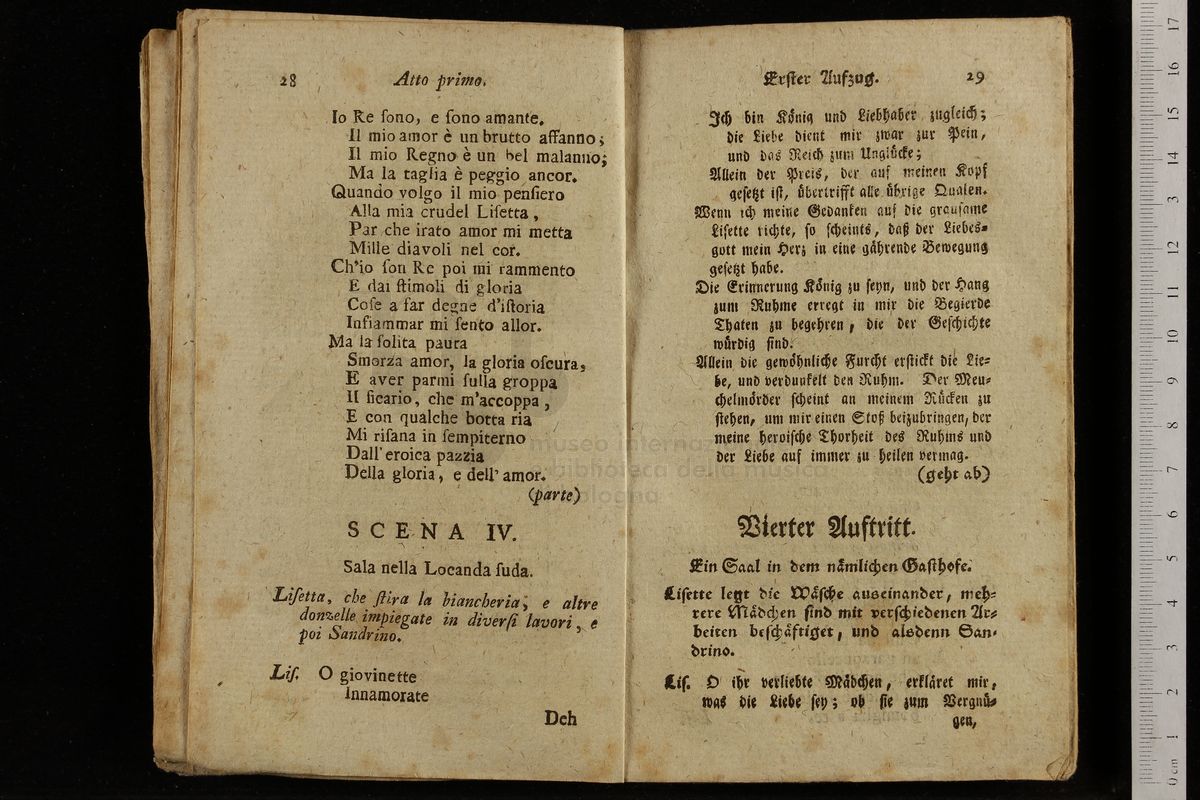 28 Atto primo.
Io Re ſono, e ſono amante.
Il mio amor è un brutto affanno;
Il mio Regno è un bel malanno;
Ma la taglia è peggio ancor.
Quando volgo il mio penſiero
Alla mia crudel Liſetta,
Par che irato amor mi metta
Mille diavoli nel cor.
Ch'io ſon Re poi mi rammento
E dai ſtimoli di gloria
Coſe a far degne d'iſtoria
Infiammar mi ſento allor.
Ma la ſolita paura
Smorza amor, la gloria oſcura,
E aver parmi ſulla groppa
Il ſicario, che m'accoppa,
E con qualche botta ria
Mi riſana in ſempiterno
Dall'eroica pazzia
Della gloria, e dell'amor.
(parte)
SCENA IV.
Sala nella Locanda ſuda.
Liſetta, che ſtira la biancheria, e altre
donzelle impiegate in diverſi lavori, e
poi Sandrino.
Liſ. O giovinette
Innamorate
Deh
Erſter Aufzug. 29
Ich bin König und Liebhaber zugleich;
die Liebe dient mir zwar zur Pein,
und das Reich zum Unglücke;
Allein der Preis, der auf meinen Kopf
geſetzt iſt, übertrifft alle übrige Qualen.
Wenn ich meine Gedanken auf die grauſame
Liſette richte, ſo ſcheints, daß der Liebes-
gott mein Herz in eine gährende Bewegung
geſetzt habe.
Die Erinnerung König zu ſeyn, und der Hang
zum Ruhme erregt in mir die Begierde
Thaten zu begehren, die der Geſchichte
würdig ſind.
Allein die gewöhnliche Furcht erſtickt die Lie-
be, und verdunkelt den Ruhm. Der Meu-
chelmörder ſcheint an meinem Rücken zu
ſtehen, um mir einen Stoß beizubringen, der
meine heroiſche Thorheit des Ruhms und
der Liebe auf immer zu heilen vermag.
(geht ab)
Vierter Auftritt.
Ein Saal in dem nämlichen Gaſthofe.
Liſette legt die Wäſche auseinander, meh-
rere Mädchen ſind mit verſchiedenen Ar-
beiten beſchäftiget, und alsdenn San-
drino.
Liſ. O ihr verliebte Mädchen, erkläret mir,
was die Liebe ſey; ob ſie zum Vergnü-
gen,